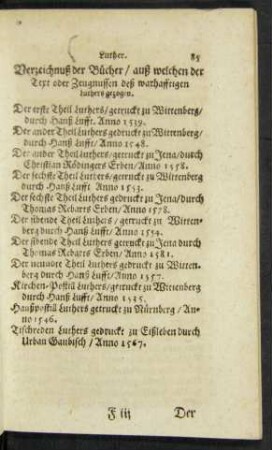 Luther. 85
Verzeichnuß der Bücher / auß welchen der
Text oder Zeugnussen deß warhafftigen
Luthers gezogen.
Der erste Theil Luthers / getruckt zu Wittenberg /
durch Hanß Lufft. Anno 1539.
Der ander Theil Luthers gedruckt zu Wittenberg /
durch Hanß Lufft / Anno 1548.
Der ander Theil Luthers gedruckt zu Jena / durch
Christian Rödingers Erben / Anno 1558.
Der sechste Theil Luthers / getruckt zu Wittenberg
durch Hanß Lufft. Anno 1553.
Der sechste Theil Luthers gedruckt zu Jena / durch
Thomas Rebarts Erben / Anno 1578.
Der sibende Theil Luthers / getruckt zu Witten-
berg durch Hanß Lufft / Anno 1554.
Der sibende Theil Luthers gedruckt zu Jena durch
Thomas Rebarts Erben / Anno 1581.
Der neundte Theil Luthers gedruckt zu Witten-
berg durch Hanß Lufft / Anno 1557.
Kirchen-Postill Luthers / getruckt zu Wittenberg
durch Hanß Lufft / Anno
Haußpostill Luthers getruckt zu Nürnberg / An-
no 1546.
Tischreden Luthers gedruckt zu Eißleben durch
Urban Gaubisch / Anno 1567.
F iij Der